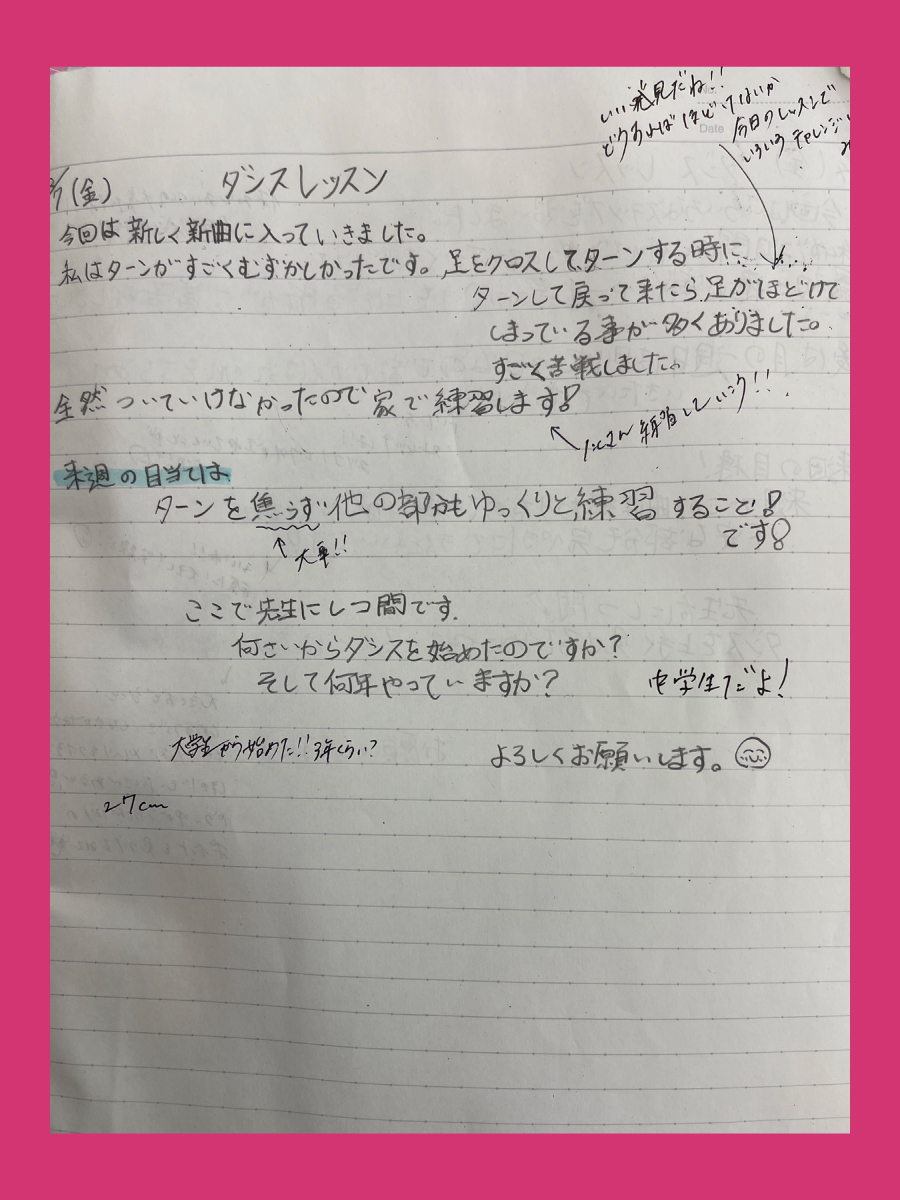 いい発見だね!!
どうすればほどけないか
今日のレッスンで
いろいろチャレンジ
Date
/7(金) ダンスレッスン
今回は新しく新曲に入っていきました。
私はターンがすごくむずかしかったです。足をクロスしてターンする時に
ターンして戻って来たら足がほどけて
しまっている事が多くありました。
すごく苦戦しました。
全然ついていけなかったので家で練習します!
たくさん練習していこう!!
来週の目当ては
ターンを焦らず他の部分もゆっくりと練習すること!
です!
大事!!
ここで先生にしつ問です.
何さいからダンスを始めたのですか?
そして何年やっていますか?
中学生だよ!
大学生から始めた!!3年くらい?
よろしくお願いします。
27cm